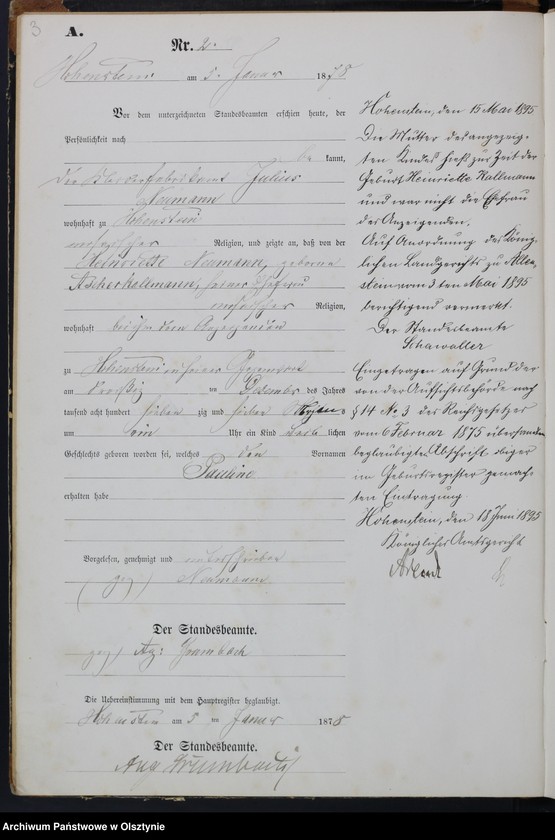 3
A.
Nr. 2.
Hohenstein am 5. Januar 1878
Vor dem unterzeichneten Standesbeamten erschien heute, der
Persönlichkeit nach
be kannt,
der Julius
Neumann
wohnhaft zu Hohenstein
mosaischer Religion, und zeigte an, daß von der
Henriette Neumann, geborne
seiner Ehefrau
mosaischer Religion,
wohnhaft bei dem Anzeigenden
zu Hohenstein in seiner Gegenwart
am dreißig ten Dezember des Jahres
tausend acht hundert sieben zig und sieben Morgens
um ein Uhr ein Kind weib lichen
Geschlechts geboren worden sei, welches den Vornamen
Pauline
erhalten habe
Vorgelesen, genehmigt und unterschrieben
(gez) Neumann
Der Standesbeamte.
gez)
Die Uebereinstimmung mit dem Hauptregister beglaubigt.
Hohenstein am 5 ten Januar 1878
Der Standesbeamte.
Hohenstein, den 15 Mai 1895
Die Mutter des angezeig-
ten Kindes hieß zur Zeit der
Geburt Henriette Kallmann
und war nicht die Ehefrau
des Anzeigenden.
Auf Anordnung des König-
lichen Landgerichts zu Allen-
stein vom 3 ten Mai 1895
berichtigend vermerkt.
Der Standesbeamte
Schawaller
Eingetragen auf Grund der
von der Aufsichtsbehörde nach
§ 14 No 3 des Reichsgesetzes
vom 6 Februar 1875 übersandten
beglaubigten Abschrift obiger
im Geburtsregister gemach-
ten Eintragung.
Hohenstein, den 18 Juni 1895
Königliches Amtsgericht
Archiwum Państwowe w Olsztynie